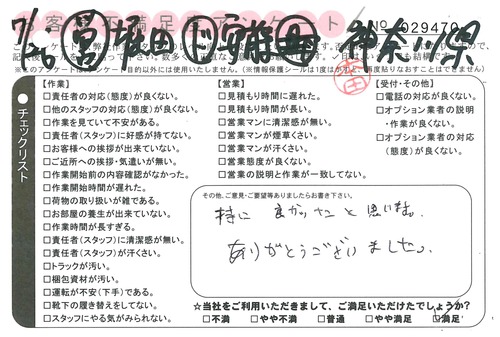 お客様不満足度アンケート No 029470
7/26 宮 堀田 安藤 神奈川県
※このアンケートはアンケート目的以外には使用いたしません。(※情報保護シールは1度はがすと、再度貼りなおすことはできません)
チェックリスト
【作業】
□責任者の対応(態度)が良くない。
□他のスタッフの対応(態度)が良くない。
□作業を見ていて不安がある。
□責任者(スタッフ)に好感が持てない。
□お客様への挨拶が出来ていない。
□ご近所への挨拶・気遣いが無い。
□作業開始前の内容確認がなかった。
□作業開始時間が遅れた。
□荷物の取り扱いが雑である。
□お部屋の養生が出来ていない。
□作業時間が長すぎる。
□責任者(スタッフ)に清潔感が無い。
□責任者(スタッフ)が汗くさい。
□トラックが汚い。
□梱包資材が汚い。
□運転が不安(下手)である。
□靴下の履き替えをしてない。
□スタッフにやる気がみられない。
【営業】
□見積もり時間に遅れた。
□見積もり時間が長い。
□営業マンに清潔感が無い。
□営業マンが煙草くさい。
□営業マンが汗くさい。
□営業態度が良くない。
□営業の説明と作業が一致してない。
【受付・その他】
□電話の対応が良くない。
□オプション業者の説明
・作業が良くない。
□オプション業者の対応
(態度)が良くない。
その他、ご意見・ご要望等ありましたらお書き下さい。
特に良かったと思います。
ありがとうございました。
☆当社をご利用いただきまして、ご満足いただけたでしょうか?
□不満 □やや不満 □普通 □やや満足 □満足